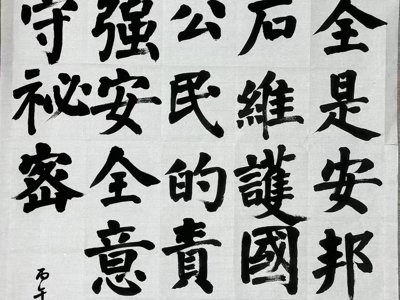 全是安邦
石維護國
公民的責
强安全意
守祕密
丙午